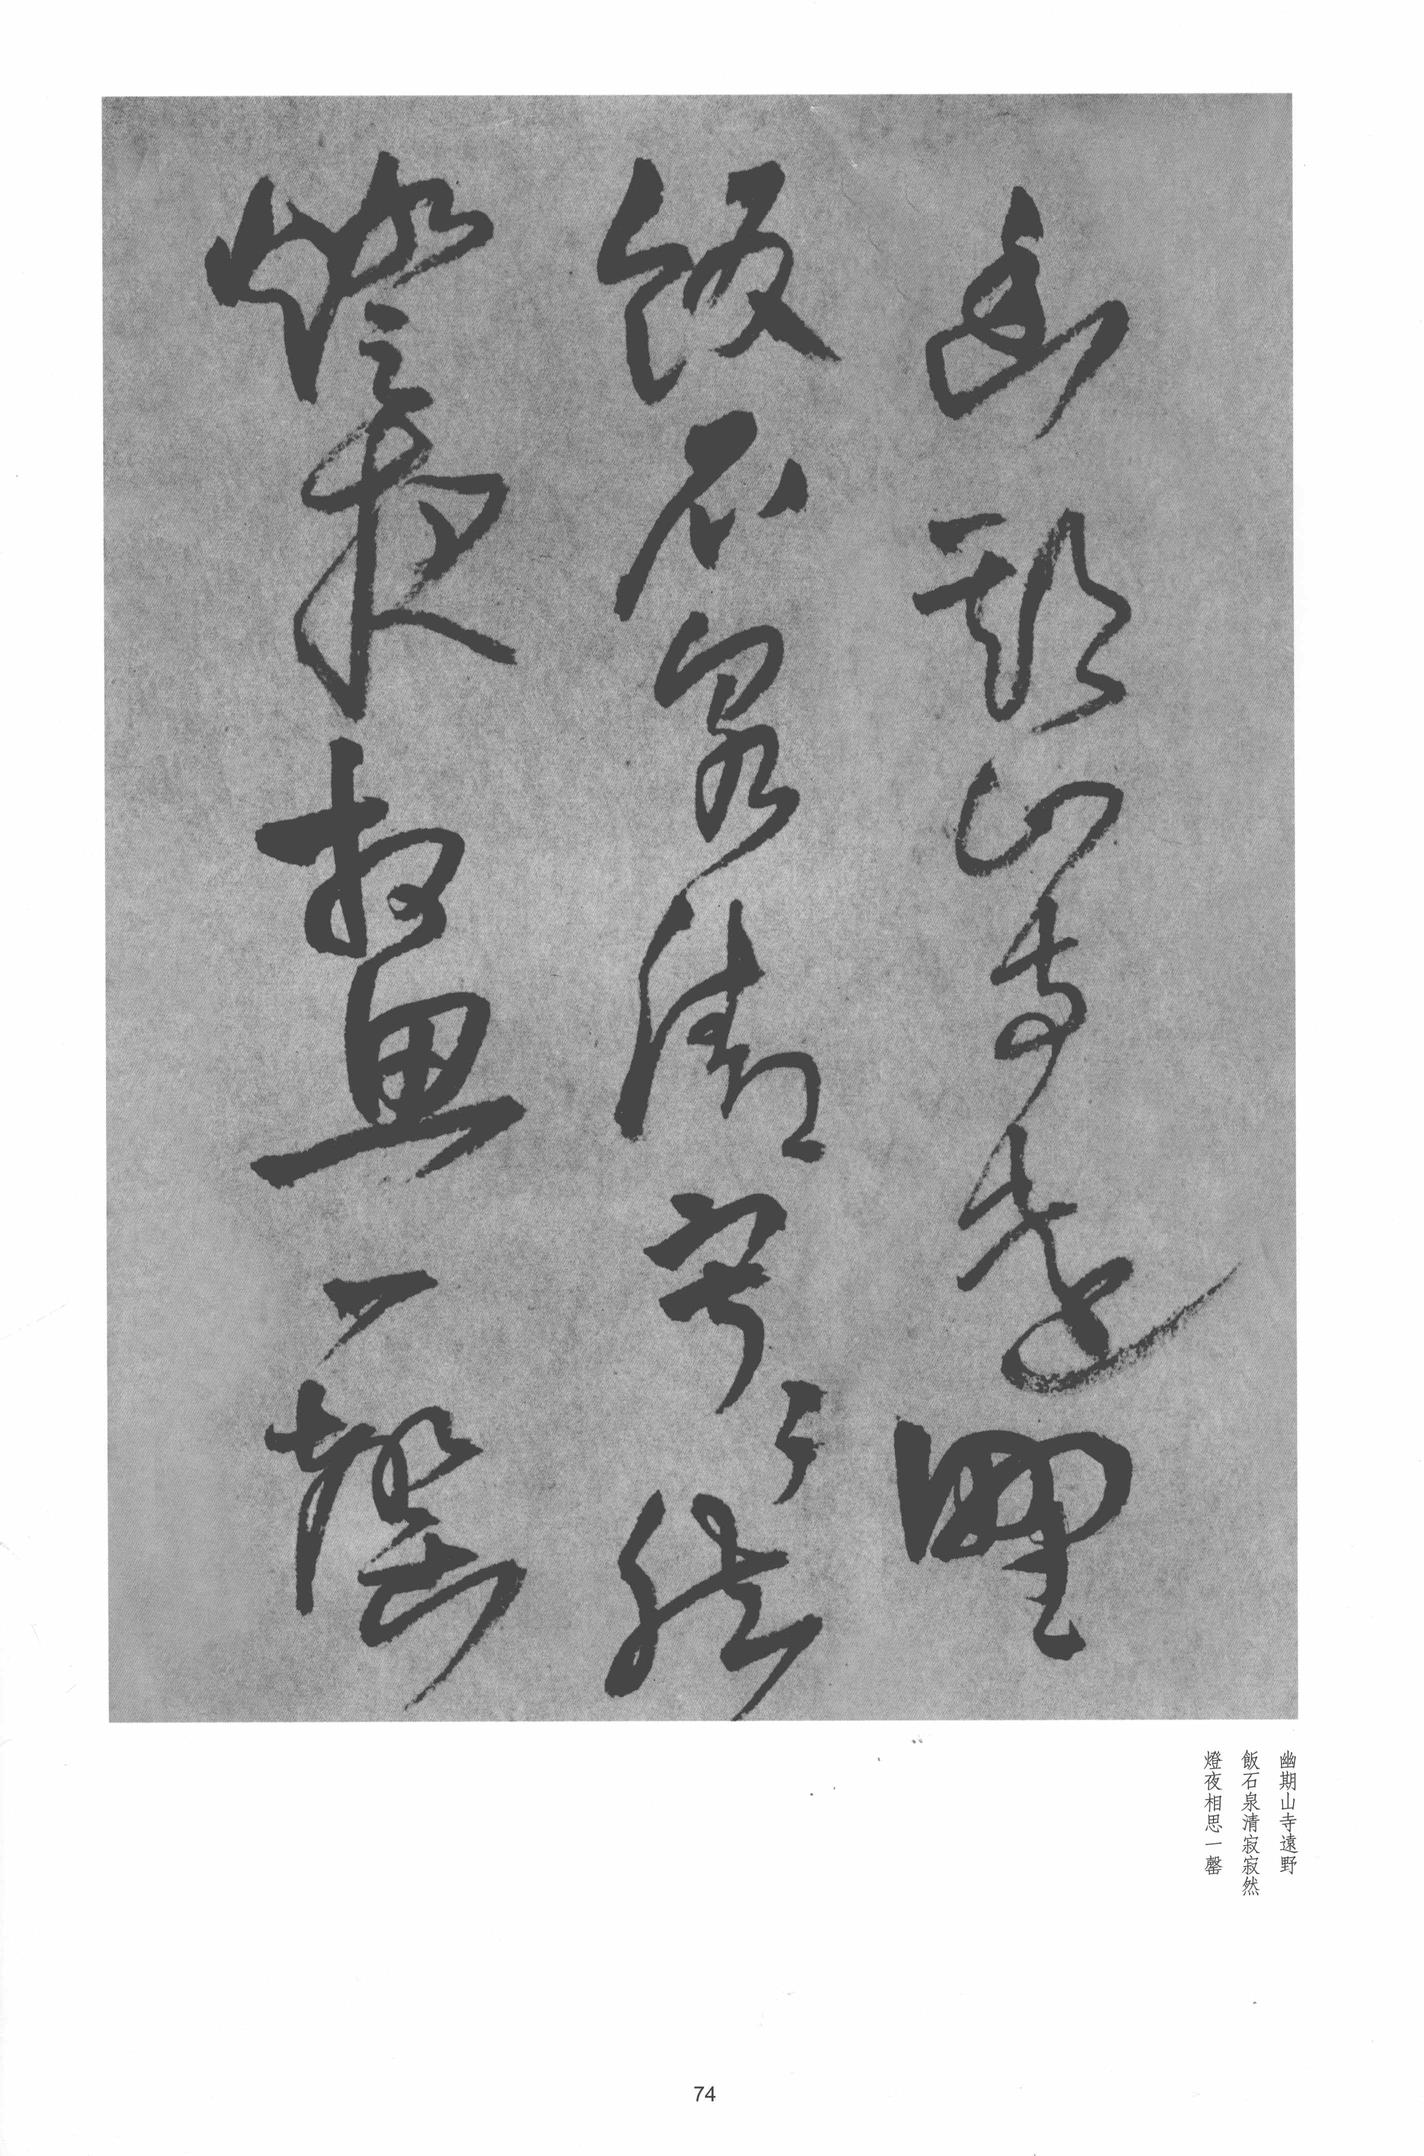 幽期山寺遠野
飯石泉清寂〻然
燈夜相思一磬
幽期山寺遠野
飯石泉清寂寂然
燈夜相思一罄
74